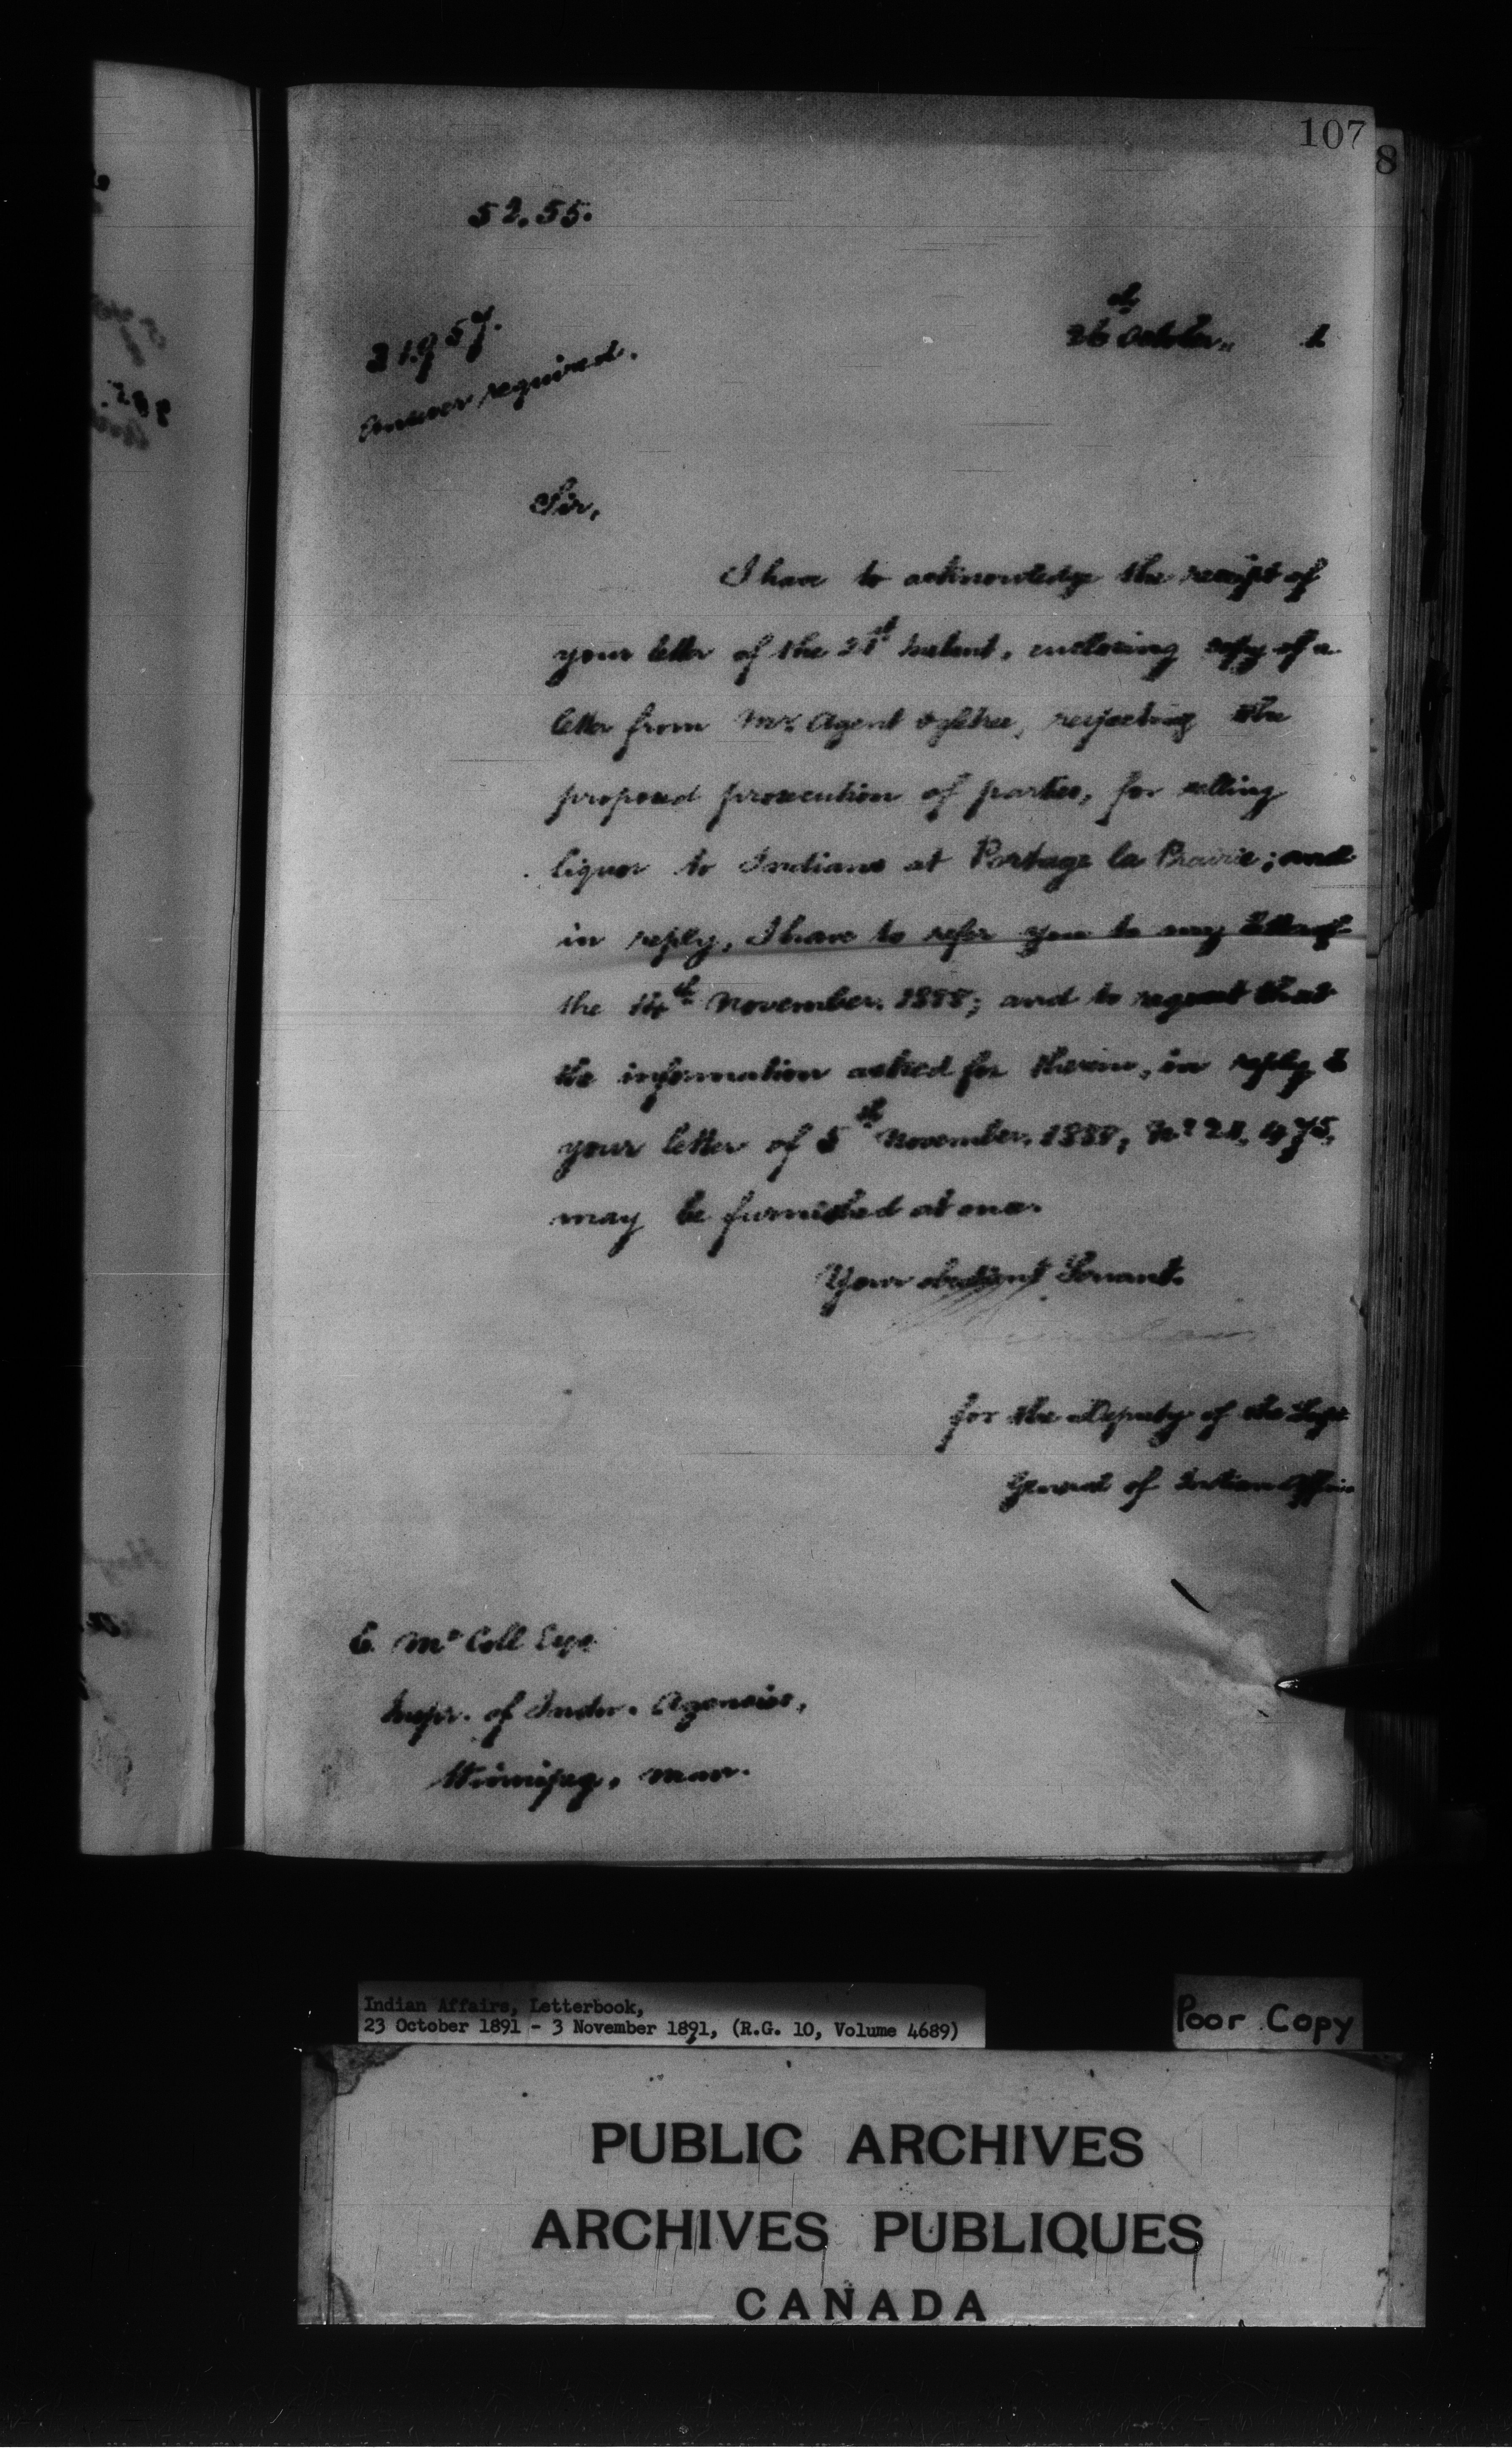 107
8
52.55.
21957.
Answer required.
26th October, 1
Sir,
I have to acknowledge the receipt of
your letter of the 21st Instant, enclosing copy of a
letter from Mr. Agent Ogletree, respecting the
proposed prosecution of parties, for selling
liquor to Indians at Portage la Prairie; and
in reply, I have to refer you to my letter of
the 14th November, 1888; and to request that
the information asked for therein, in reply to
your letter of 5th November, 1888, No 475,
may be furnished at once.
Your obedient Servant.
for the Deputy of the Supt
General of Indian Affairs
E. McColl Esqr
Inspr. of Indn. Agencies,
Winnipeg, Man.
Indian Affairs, Letterbook,
23 October 1891 - 3 November 1891, (R.G. 10, Volume 4689)
Poor Copy
PUBLIC ARCHIVES
ARCHIVES PUBLIQUES
CANADA